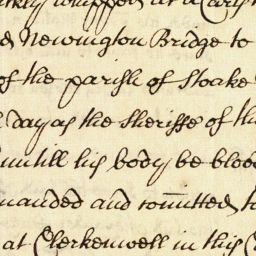 whipped at a Carts
Newington Bridge to
of the parish of Stoake
day as the Sheriffe of th
untill his body be blood
manded and com̃itted to
at Clerkenwell in this C